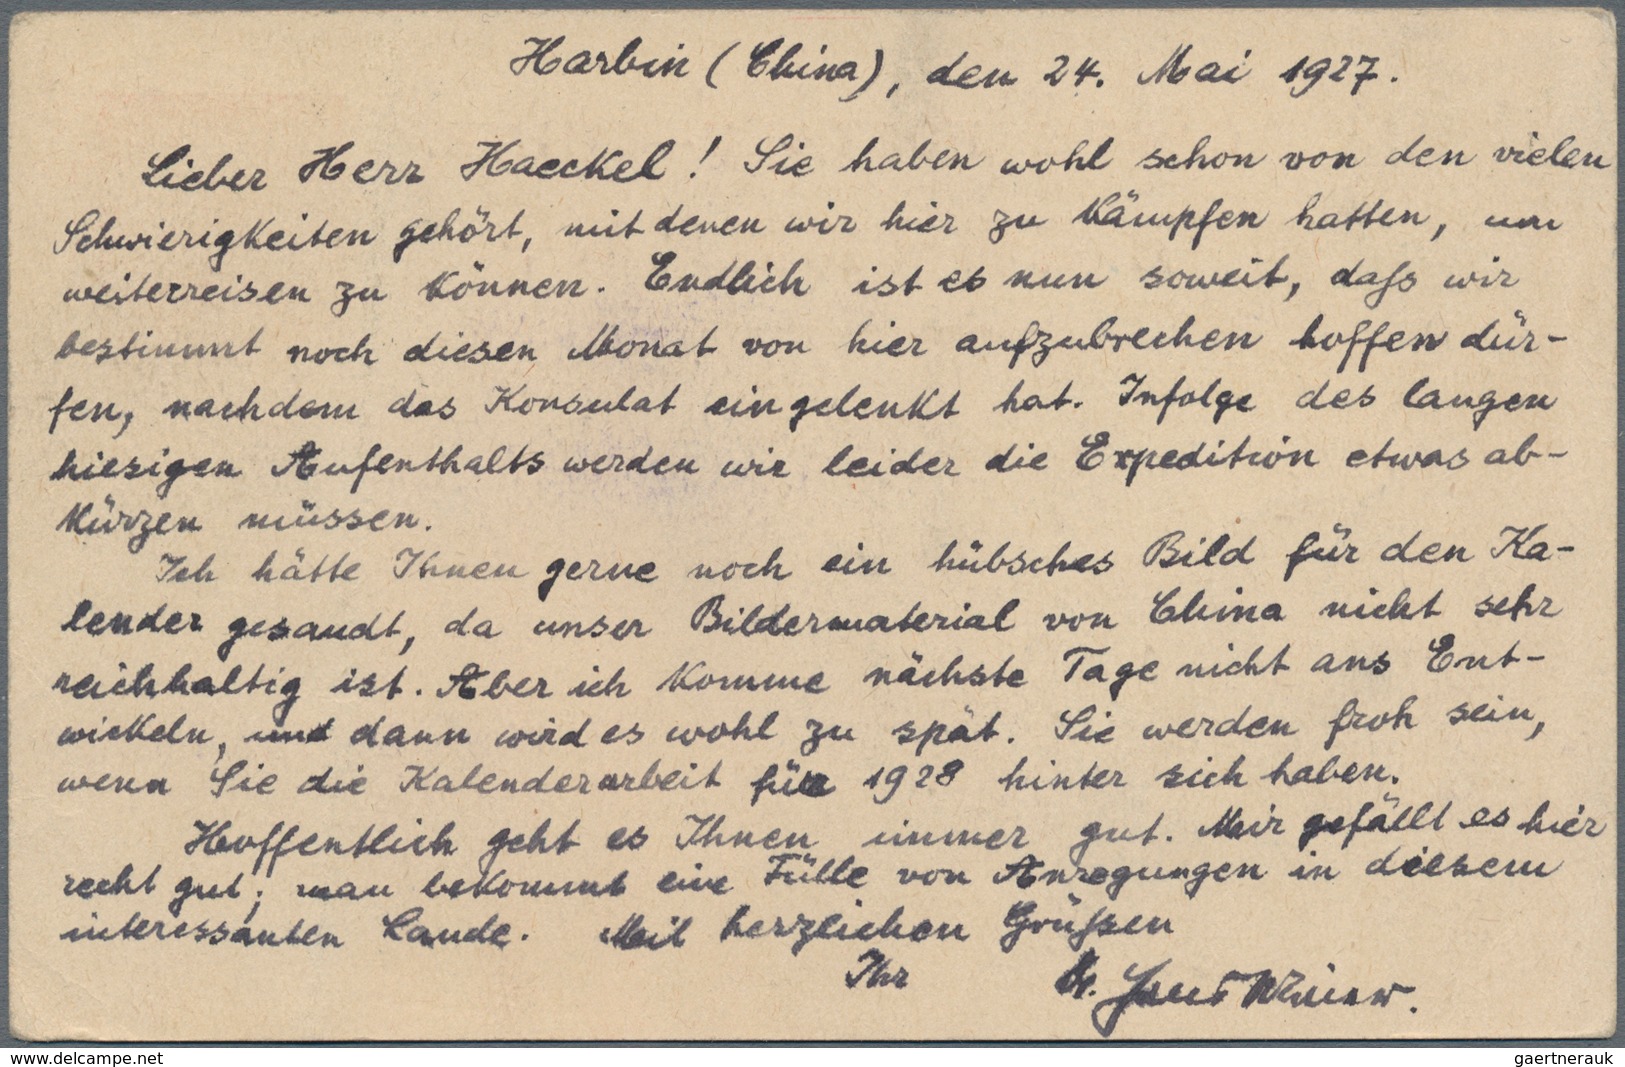 Harbin (China), den 24. Mai 1927.
Lieber Herr Haeckel! Sie haben wohl schon von den vielen
Schwierigkeiten gehört, mit denen wir hier zu kämpfen hatten, um
weiterreisen zu können. Endlich ist es nun soweit, daſs wir
bestimmt noch diesen Monat von hier aufzubrechen hoffen dür-
fen, nachdem das Konsulat eingelenkt hat. Infolge des langen
hiesigen Aufenthalts werden wir leider die Expedition etwas ab-
kürzen müssen.
Ich hätte Ihnen gerne noch ein hübsches Bild für den Ka-
lender gesandt, da unser Bildermaterial von China nicht sehr
reichhaltig ist. Aber ich komme nächste Tage nicht ans Ent-
wickeln, und dann wird es wohl zu spät. Sie werden froh sein,
wenn Sie die Kalenderarbeit für 1928 hinter sich haben.
Hoffentlich geht es Ihnen immer gut. Mir gefällt es hier
recht gut; man bekommt eine Fülle von Anregungen in diesem
interessanten Lande. Mit herzlichen Grüſsen
Ihr
www.delcampe.net
gaertnerauk